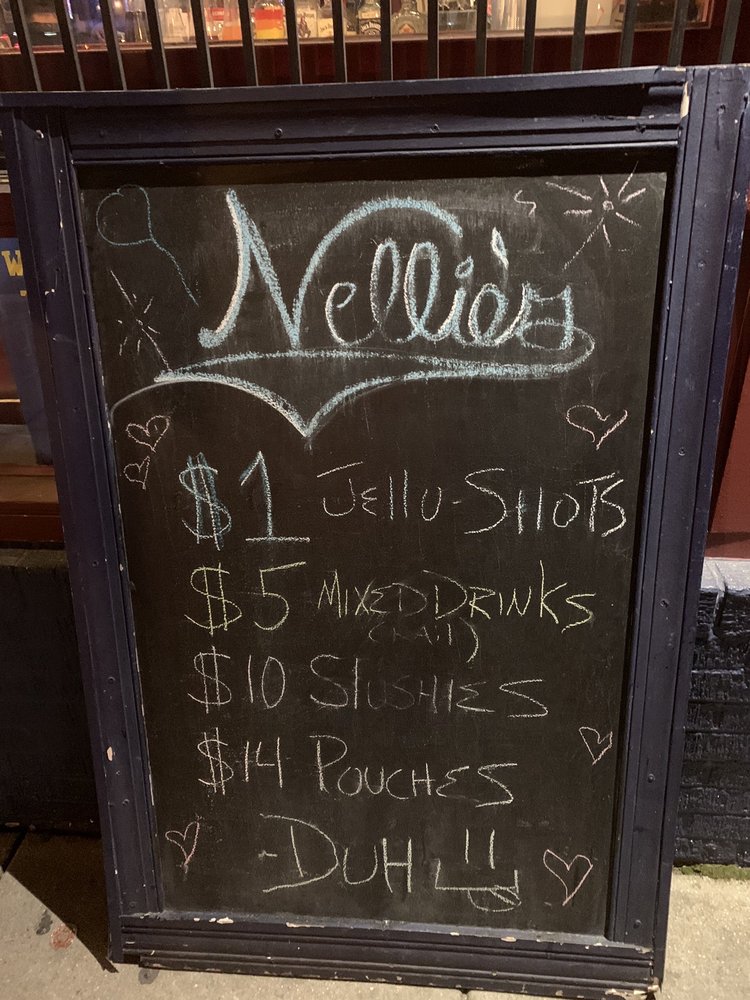 Nellie's
$1 Jello-Shots
$5 Mixed Drinks
(Rail)
$10 Slushies
$14 Pouches
-Duh
W